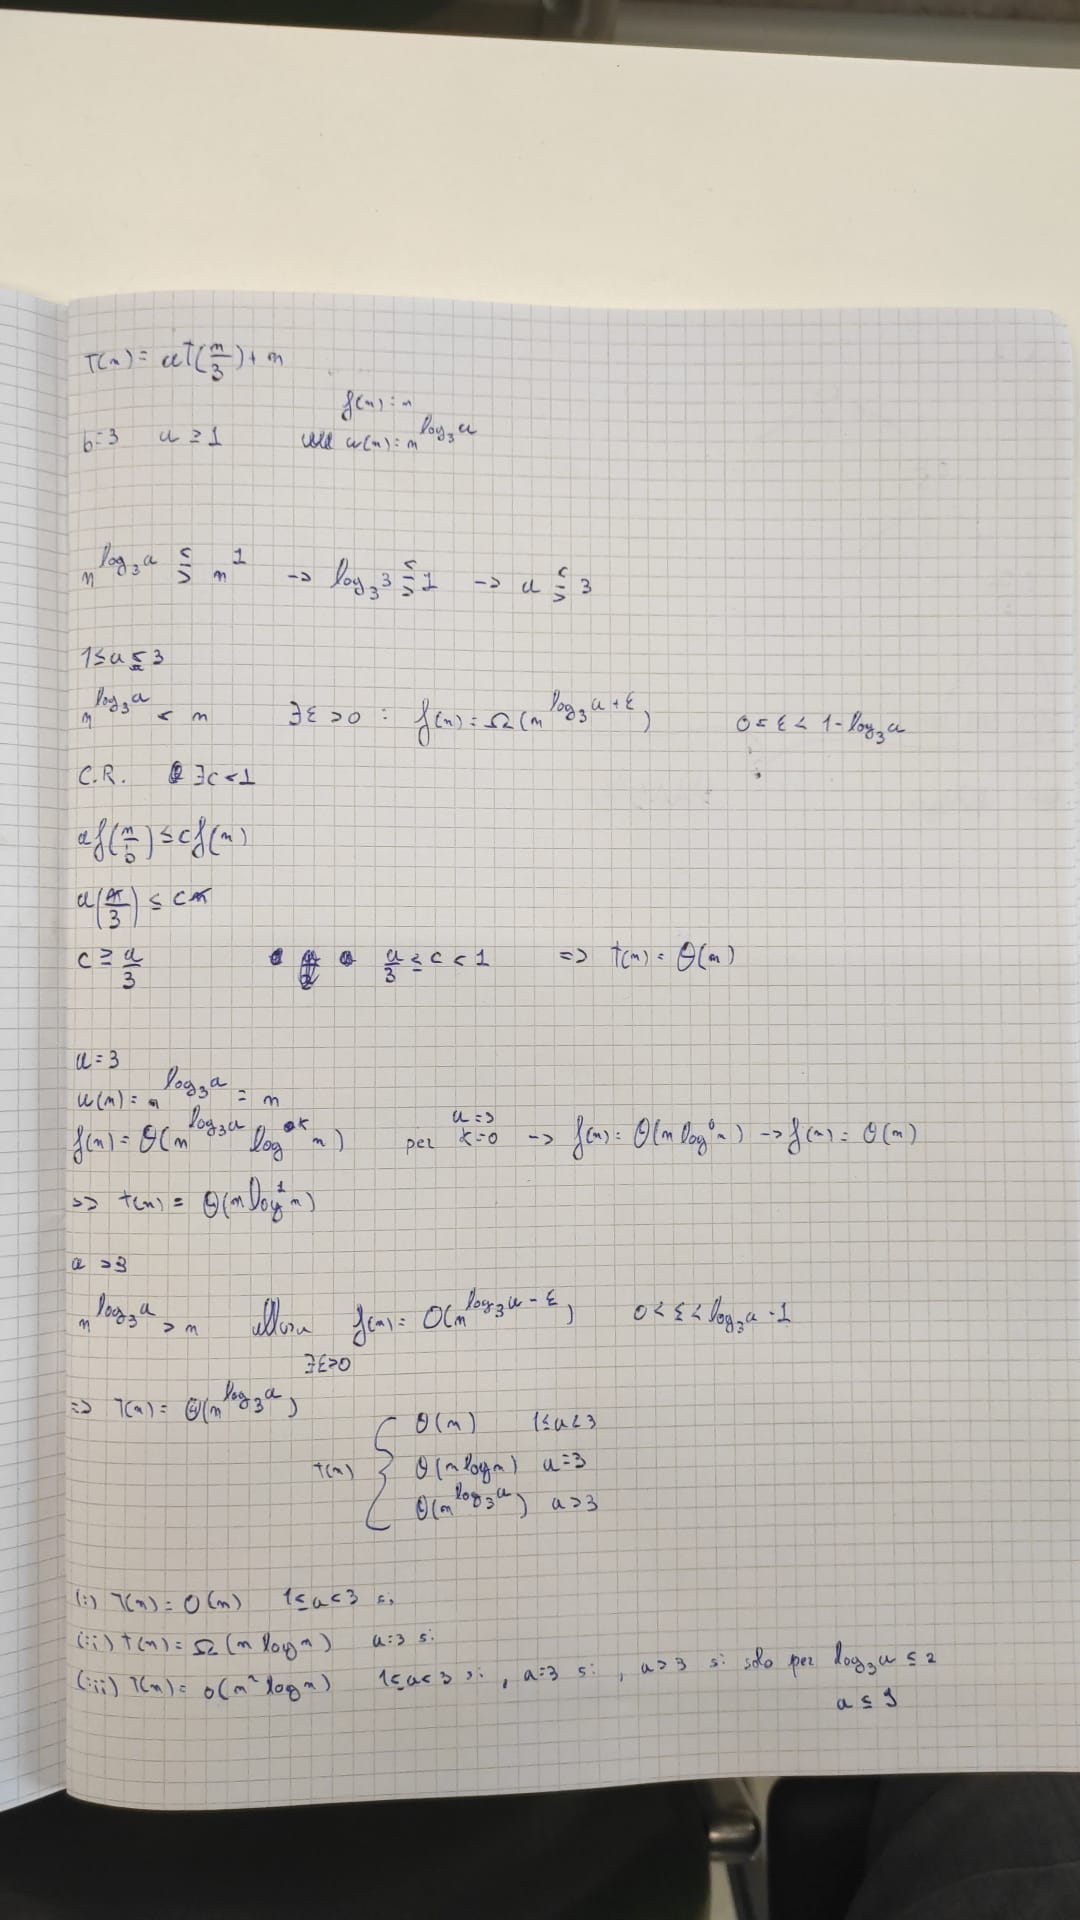 T(n) = aT(n/3) + n
f(n) = n
b=3 a ≥ 1 w(n) = n^log₃a
n^log₃a ⋚ n^1 -> log₃3 ⋚ 1 -> a ⋚ 3
1≤a≤3
n^log₃a < n ∃ε>0 : f(n) = Ω(n^log₃a+ε) 0≤ε< 1-log₃a
C.R. ∃c<1
af(n/b) ≤ cf(n)
a(n/3) ≤ cn
c ≥ a/3 a/3 ≤ c < 1 => T(n) = Θ(n)
a=3
w(n) = n^log₃a = n
f(n) = Θ(n^log₃a log^k n) per a=3 k=0 -> f(n) = Θ(n log⁰n) -> f(n) = Θ(n)
=> T(n) = Θ(n log¹n)
a >3
n^log₃a > n allora f(n) = O(n^log₃a-ε) 0<ε<log₃a-1
∃ε>0
=> T(n) = Θ(n^log₃a)
T(n) { Θ(n) 1≤a<3
Θ(n log n) a=3
Θ(n^log₃a) a>3
(i) T(n) = O(n) 1≤a<3 si
(ii) T(n) = Ω(n log n) a=3 si
(iii) T(n) = o(n² log n) 1≤a<3 si, a=3 si, a>3 si solo per log₃a ≤ 2
a ≤ 9